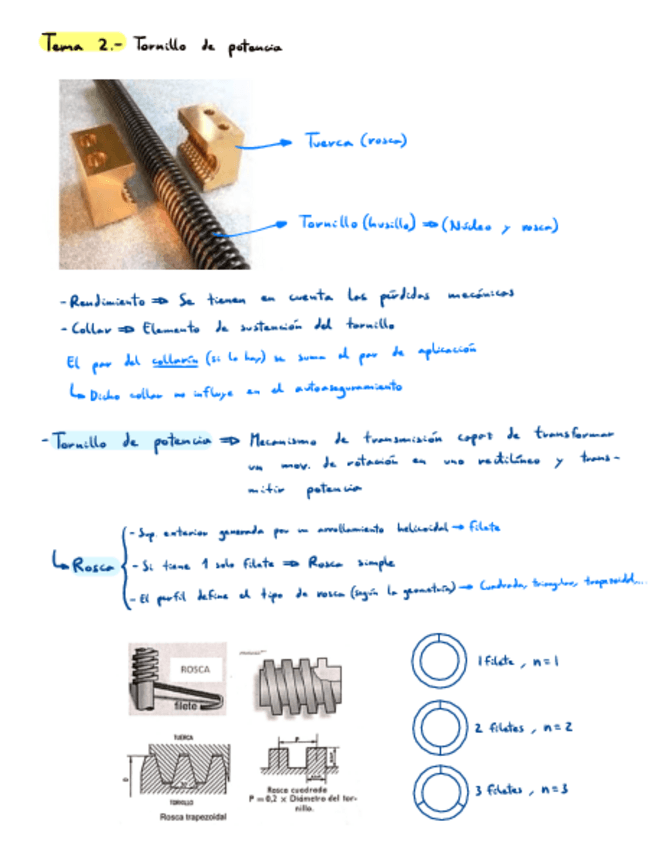 Tema 2.- Tornillo de potencia
Tuerca (rosca)
Tornillo (husillo) ⇒ (Núcleo y rosca)
- Rendimiento ⇒ Se tienen en cuenta las pérdidas mecánicas
- Collar ⇒ Elemento de sustención del tornillo
El par del collarín (si lo hay) se suma al par de aplicación
↳ Dicho collar no influye en el autoaseguramiento
- Tornillo de potencia ⇒ Mecanismo de transmisión capaz de transformar
un mov. de rotación en uno rectilíneo y trans-
mitir potencia
↳ Rosca
- Sup. exterior generada por un arrollamiento helicoidal → filete
- Si tiene 1 solo filete ⇒ Rosca simple
- El perfil define el tipo de rosca (según la geometría) → Cuadrada, triangular, trapezoidal...
ROSCA
filete
1 filete, n=1
2 filetes, n=2
3 filetes, n=3
TUERCA
D
TORNILLO
Rosca trapezoidal
P
Rosca cuadrada
P = 0,2 × Diámetro del tor-
nillo.